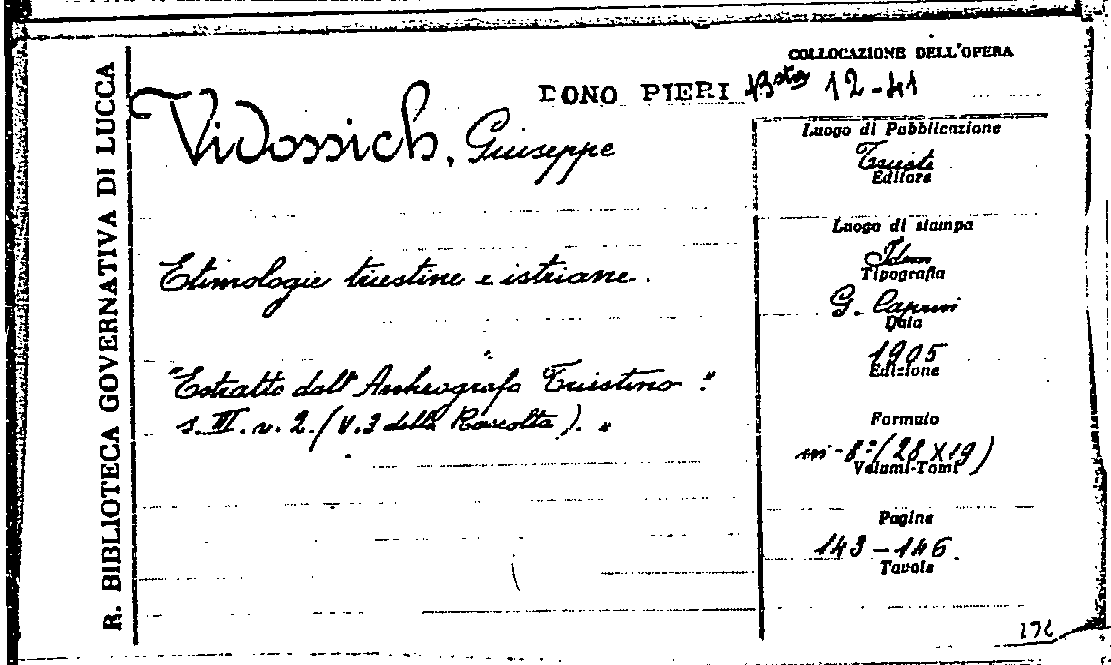 R. BIBLIOTECA GOVERNATIVA DI LUCCA
COLLOCAZIONE DELL'OPERA
DONO PIERI 12-41
Vidossich, Giuseppe
Etimologie triestine e istriane.
"Estratto dall'Archeografo Triestino"
s. III. v. 2. (V. 3 della Raccolta). "
Luogo di Pubblicazione
Trieste
Editore
Luogo di stampa
Idem
Tipografia
G. Caprin
Data
1905
Edizione
Formato
in-8° (28 X 19)
Volumi-Tomi
Pagine
143-146.
Tavole